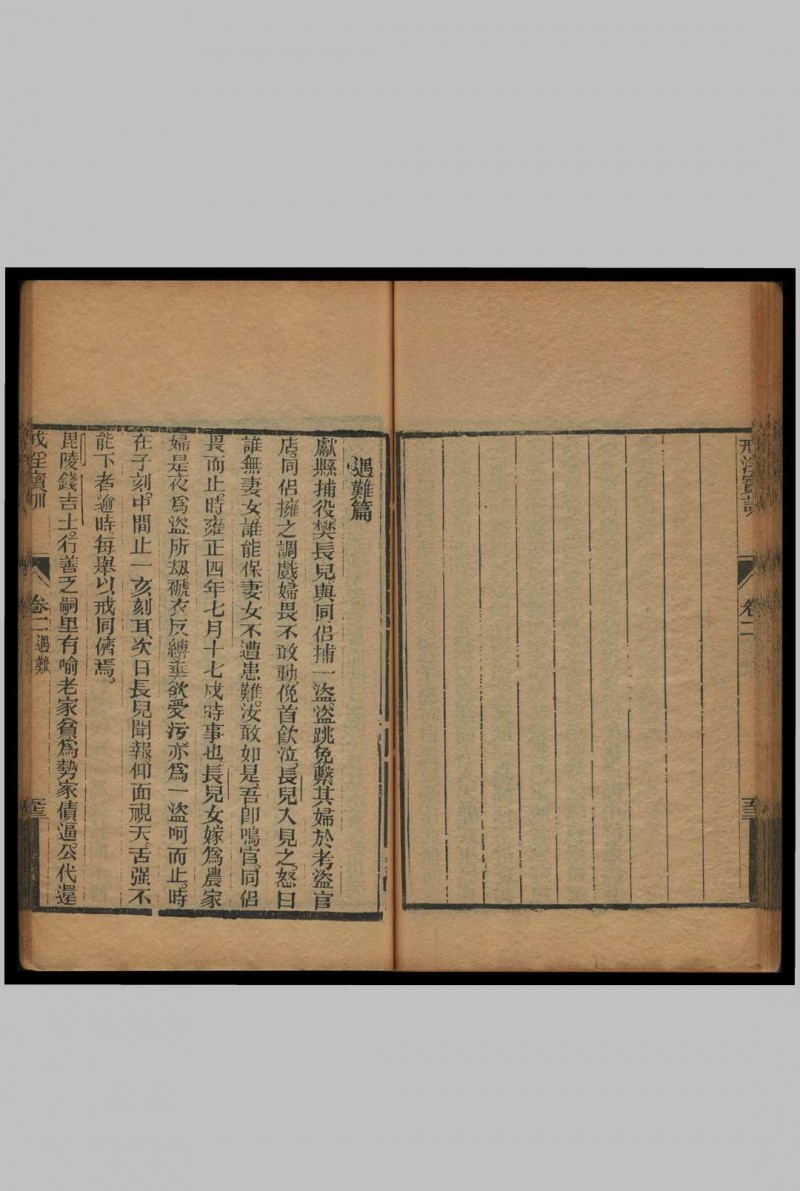 戒淫寶訓
卷二
遇難篇
獻縣捕役樊長兒與同侶捕一盜。盜跳免。繫其婦於考盜官
店。同侶擁之調戲。婦畏不敢動。俛首飲泣。長兒入見之。怒曰
誰無妻女。誰能保妻女不遭患難。汝敢如是。吾卽鳴官。同侶
畏而止。時雍正四年七月十七戌時事也。長兒女嫁爲農家
婦。是夜爲盜所刼。褫衣反縛。垂欲受污。亦爲一盜呵而止。時
在子刻。中間止一亥刻耳。次日長兒聞報。仰面視天。舌强不
能下者逾時。每舉以戒同儕焉。
毘陵錢吉士。行善乏嗣。里有喻老家貧。爲勢家債逼。公代還
戒淫寶訓
卷二 遇難